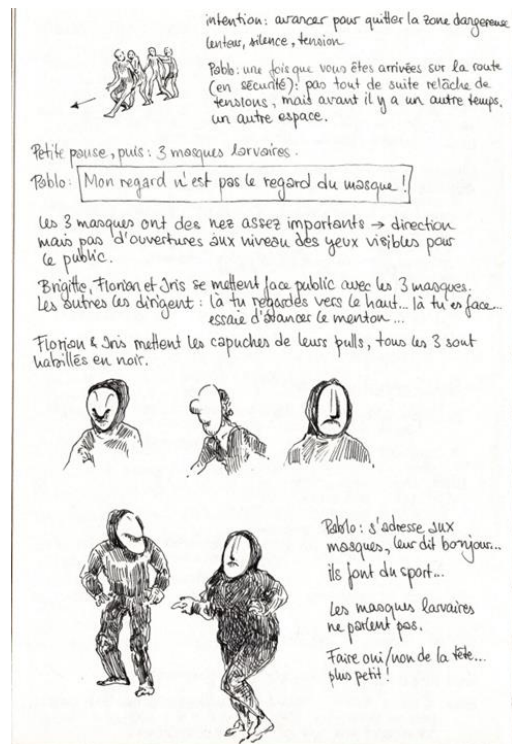 intention: avancer pour quitter la zone dangereuse
lenteur, silence, tension
Pablo: une fois que vous êtes arrivées sur la route
(en sécurité): pas tout de suite relâche de
tensions, mais avant il y a un autre temps,
un autre espace.
Petite pause, puis: 3 masques larvaires.
Pablo: Mon regard n'est pas le regard du masque!
Les 3 masques ont des nez assez importants → direction
mais pas d'ouvertures aux niveau des yeux visibles pour
le public.
Brigitte, Florian et Iris se mettent face public avec les 3 masques.
Les autres les dirigent: là tu regardes vers le haut... là tu es face...
essaie d'avancer le menton...
Florian & Iris mettent les capuches de leurs pulls, tous les 3 sont
habillés en noir.
Pablo: s'adresse aux
masques, leur dit bonjour...
ils font du sport...
Les masques larvaires
ne parlent pas.
Faire oui/non de la tête...
plus petit!